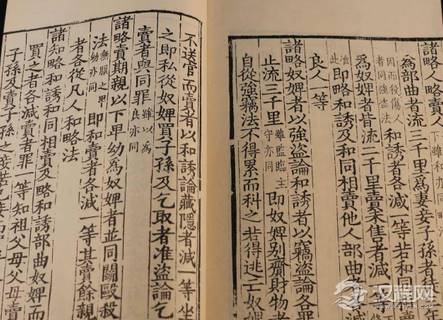 諸略人略賣人
為部曲者流三千里為妻妾子孫者
因而
傷人
者同強
盜法
各減一等若和
為奴婢者皆流二千里賣未售者減一等
即略和誘及和同相賣他人部曲
良人一等
諸略奴婢者以強盜論和誘者以竊盜論各罪
止流三千里
雖監臨主
守亦同
即奴婢別齎財物者
自從強竊法不得累而科之若得逃亡奴婢
不送官而賣者以和誘論藏隱者減一等坐
之即私從奴婢買子孫及乞取者準盜論乞
賣者與同罪
雖以為
良亦同
諸略賣期親以下卑幼為奴婢者並同鬬毆殺
法
無服之卑
幼亦同
即和賣者各減一等其賣餘親
者各從凡人和略法
諸知略和誘和同相賣及略和誘部曲奴婢而
買之者各減賣者罪一等知祖父母父母賣
子孫及賣子孫之妾若
汉程网